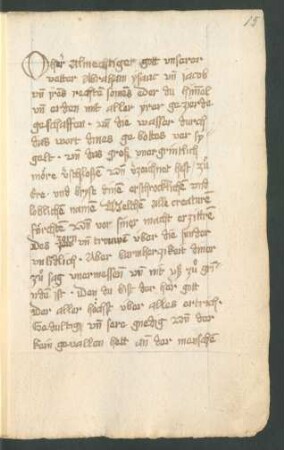 15
O her Almechtiger gott unserer
vetter Abraham ysaac vn̄ jacob
vn̄ yres rechten somes Der du himel
vn̄ erden mit aller yrer gezierde
geschaffen · vn̄ die wasser durch
das wort dines gebottes ver sy
gelt · vn̄ das groß vnergrüntlich
möre v̄schloßen vn̄ v̄zeichnet hast / zů
ere vnd bryse dinen erschrockliche vnd
loblichen namē Welchen alle creaturē
förchten vn̄ vor siner macht erzittrē
Des vn̄ trauwe vber die sünder
vnlidlich · Aber barmherzikeit diner
zů sag vnermessen vn̄ nit vß zů grü
nden ist · Den du bist der her gott
Der aller höhst vber alles ertrich ·
Gedultig vn̄ sere gnedig vn̄ der
kain gevallen hett an der menschen